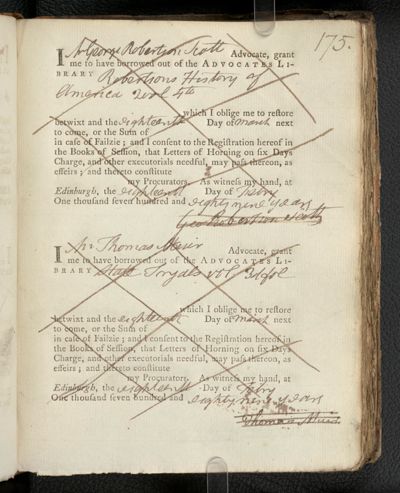 175.
I Mr George Robertson Scott Advocate, grant
me to have borrowed out of the ADVOCATES LI-
BRARY Robertsons History of
America 2 vol 4to
which I oblige me to restore
betwixt and the eighteenth Day of March next
to come, or the Sum of
in case of Failzie ; and I consent to the Registration hereof in
the Books of Session, that Letters of Horning on six Days
Charge, and other executorials needful, may pass thereon, as
effeirs ; and thereto constitute
my Procurators. As witness my hand, at
Edinburgh, the eighteenth Day of Febry
One thousand seven hundred and eighty nine years
Geo Robertson Scott
I Mr Thomas Muir Advocate, grant
me to have borrowed out of the ADVOCATES LI-
BRARY State Tryals vol
which I oblige me to restore
betwixt and the eighteenth Day of March next
to come, or the Sum of
in case of Failzie ; and I consent to the Registration hereof in
the Books of Session, that Letters of Horning on six Days
Charge, and other executorials needful, may pass thereon, as
effeirs ; and thereto constitute
my Procurators. As witness my hand, at
Edinburgh, the eighteenth Day of Febry
One thousand seven hundred and eighty nine years
Thomas Muir